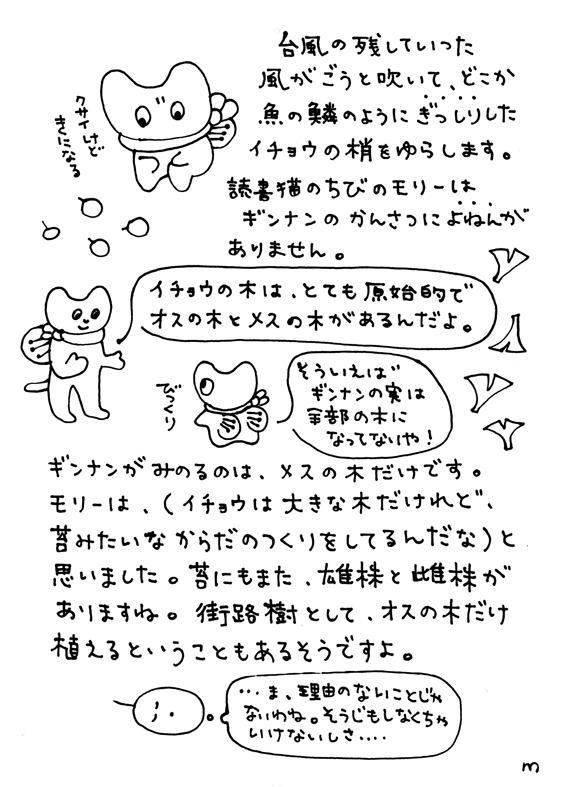 台風の残していった
風がごうと吹いて、どこか
魚の鱗のようにぎっしりした
イチョウの梢をゆらします。
クサイけど
きになる
読書猫のちびのモリーは
ギンナンのかんさつによねんが
ありません。
イチョウの木は、とても原始的で
オスの木とメスの木があるんだよ。
びっくり
そういえば
ギンナンの実は
全部の木に
なってないや！
ギンナンがみのるのは、メスの木だけです。
モリーは、（イチョウは大きな木だけれど、
苔みたいなからだのつくりをしてるんだな）と
思いました。苔にもまた、雄株と雌株が
ありますね。街路樹として、オスの木だけ
植えるということもあるそうですよ。
…ま、理由のないことじゃ
ないわね。そうじもしなくちゃ
いけないしさ‥‥
m